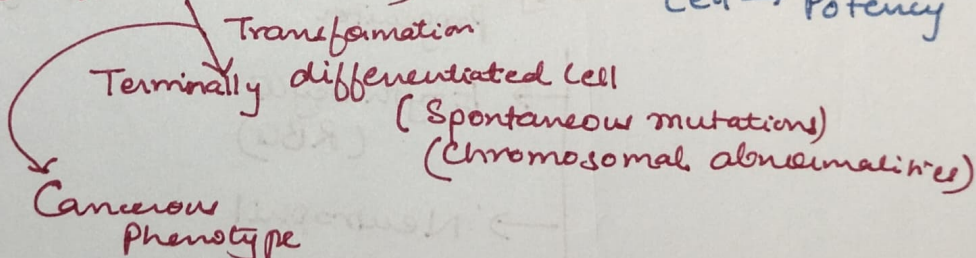 Cell → Potency
Transformation
Terminally differentiated Cell
(Spontaneous mutations)
(Chromosomal abnormalities)
Cancerous
Phenotype